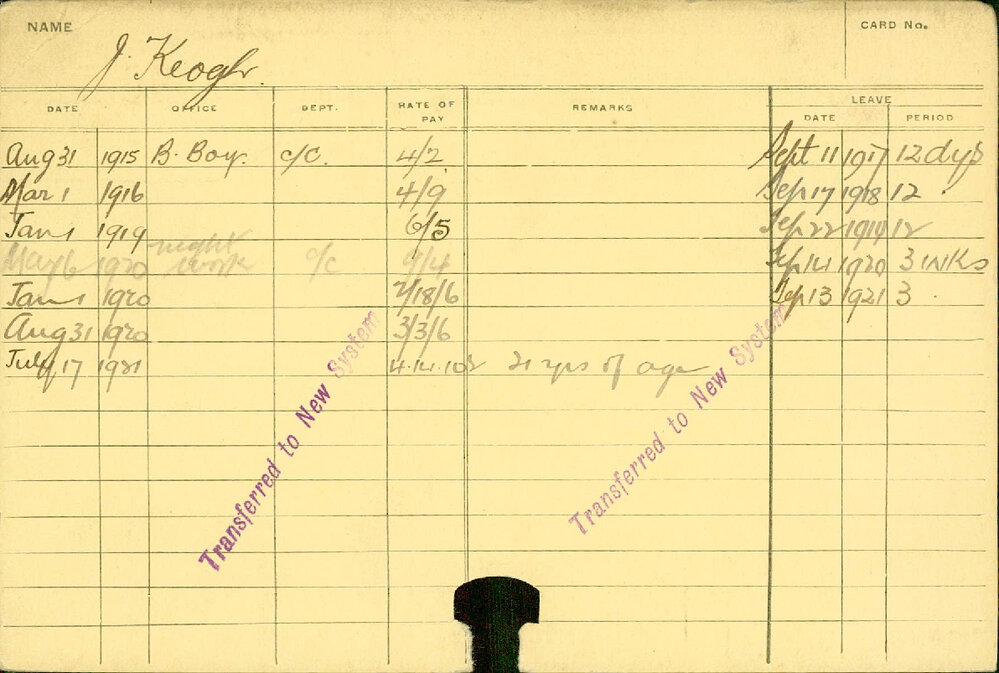 NAME
CARD No.
J. Keogh.
DATE OFFICE DEPT. RATE OF PAY REMARKS LEAVE
DATE PERIOD
Aug 31 1915 B. Boy. c/c. 4/2 Sept 11 1917 12 dys
Mar 1 1916 4/9 Sep 17 1918 12
Jan 1 1919 6/5 Sep 22 1919 12
May 6 1920 night work c/c 9/4 Sep 14 1920 3 wks
Jan 1 1920 2/18/6 Sep 13 1921 3
Aug 31 1920 3/3/6
July 17 1921 4.14.10½ 21 yrs of age
Transferred to New System
Transferred to New System